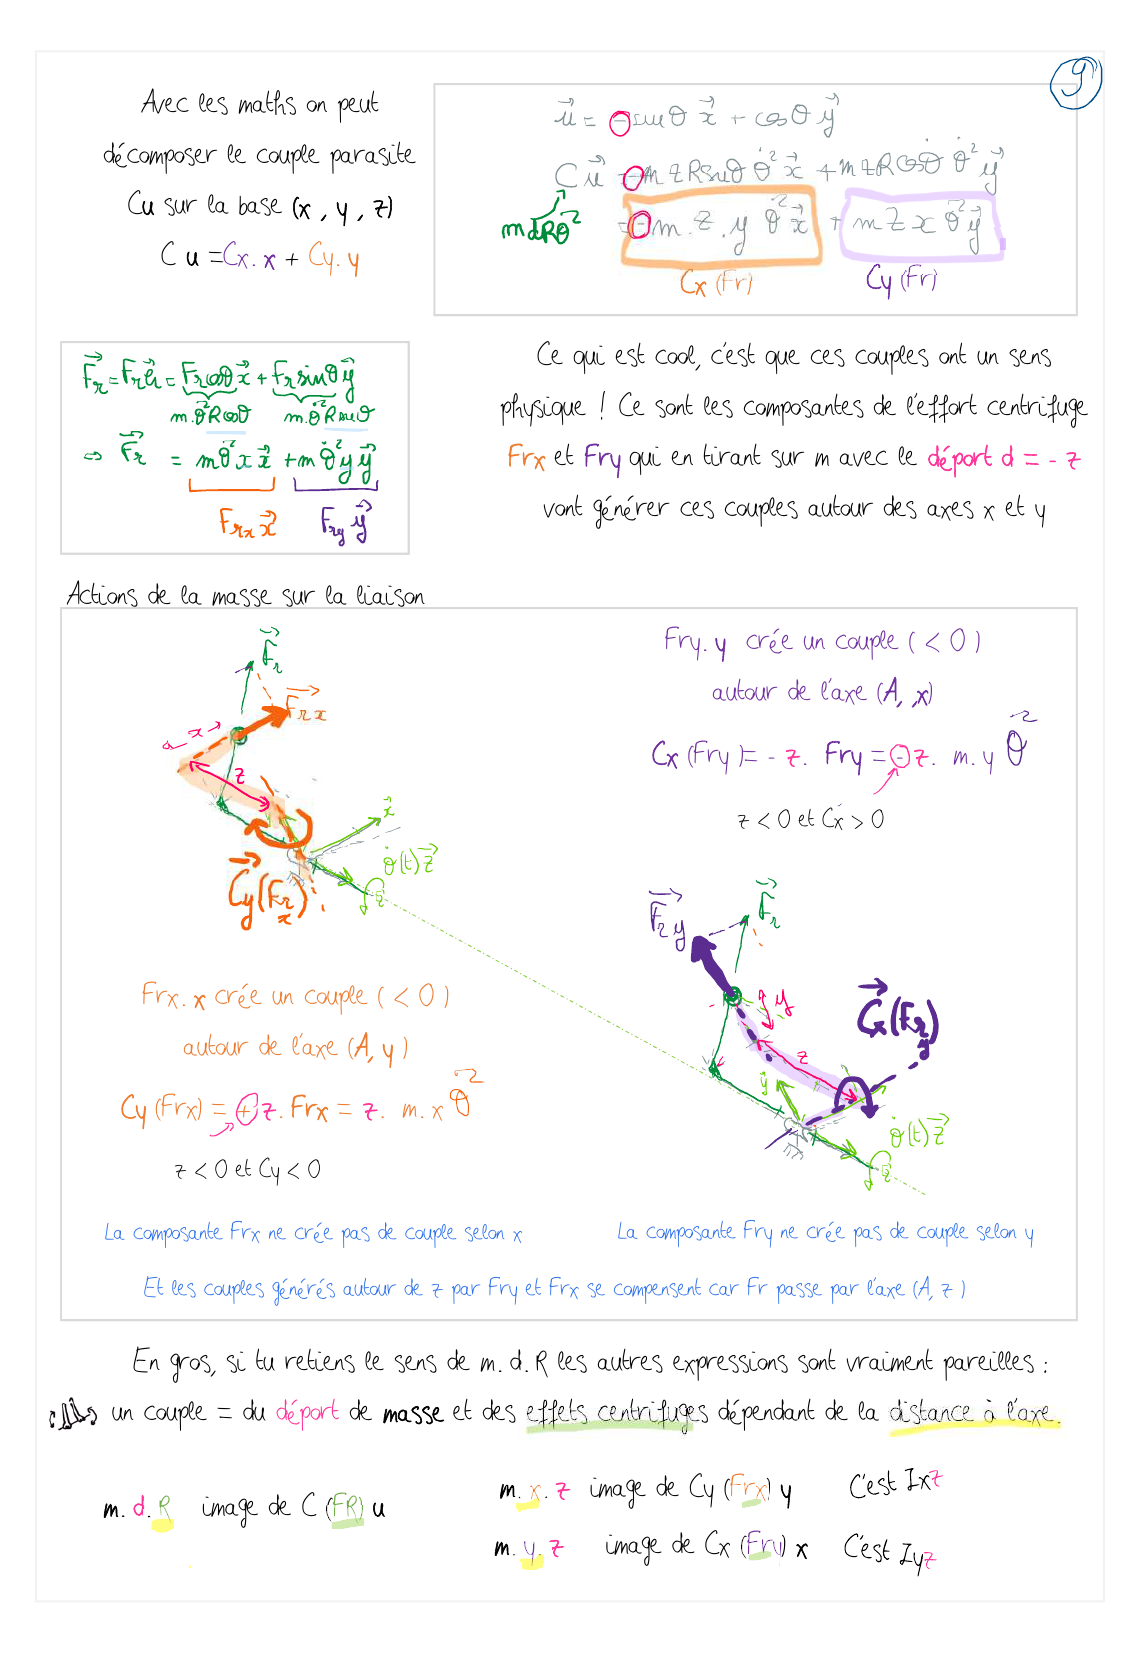 9
Avec les maths on peut
décomposer le couple parasite
Cu sur la base (x , y , z)
C u = Cx. x + Cy. y
u⃗ = - sinθ x⃗ + cosθ y⃗
C u⃗ = -m z R sinθ θ̇² x⃗ + m z R cosθ θ̇² y⃗
m d R θ̇²
= - m . z . y θ̇² x⃗ + m z x θ̇² y⃗
Cx (Fr)
Cy (Fr)
F⃗r = Fr u⃗ = Fr cosθ x⃗ + Fr sinθ y⃗
m.θ̇² R cosθ m.θ̇² R sinθ
⇒ F⃗r = m θ̇² x x⃗ + m θ̇² y y⃗
Frx x⃗ Fry y⃗
Ce qui est cool, c'est que ces couples ont un sens
physique ! Ce sont les composantes de l'effort centrifuge
Frx et Fry qui en tirant sur m avec le départ d = - z
vont générer ces couples autour des axes x et y
Actions de la masse sur la liaison
F⃗r
F⃗rx
x
z
x⃗
θ̇(t) z⃗
C⃗y(Frx)
Fry. y crée un couple ( < 0 )
autour de l'axe (A, x)
Cx (Fry) = - z. Fry = - z. m. y θ̇²
z < 0 et Cx > 0
F⃗r y
F⃗r
y
z
y⃗
C⃗x(Fry)
θ̇(t) z⃗
Frx. x crée un couple ( < 0 )
autour de l'axe (A, y )
Cy (Frx) = + z. Frx = z. m. x θ̇²
z < 0 et Cy < 0
La composante Frx ne crée pas de couple selon x
La composante Fry ne crée pas de couple selon y
Et les couples générés autour de z par Fry et Frx se compensent car Fr passe par l'axe (A, z )
En gros, si tu retiens le sens de m. d. R les autres expressions sont vraiment pareilles :
un couple = du départ de masse et des effets centrifuges dépendant de la distance à l'axe.
m. d. R image de C (FR) u
m. x. z image de Cy (Frx) y C'est Ixz
m. y. z image de Cx (Fry) x C'est Iyz